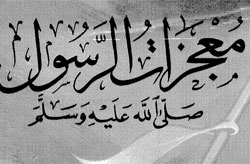 معجزات الرسول
صَلَّى اللهُ عَلَيْهِ وَسَلَّمَ